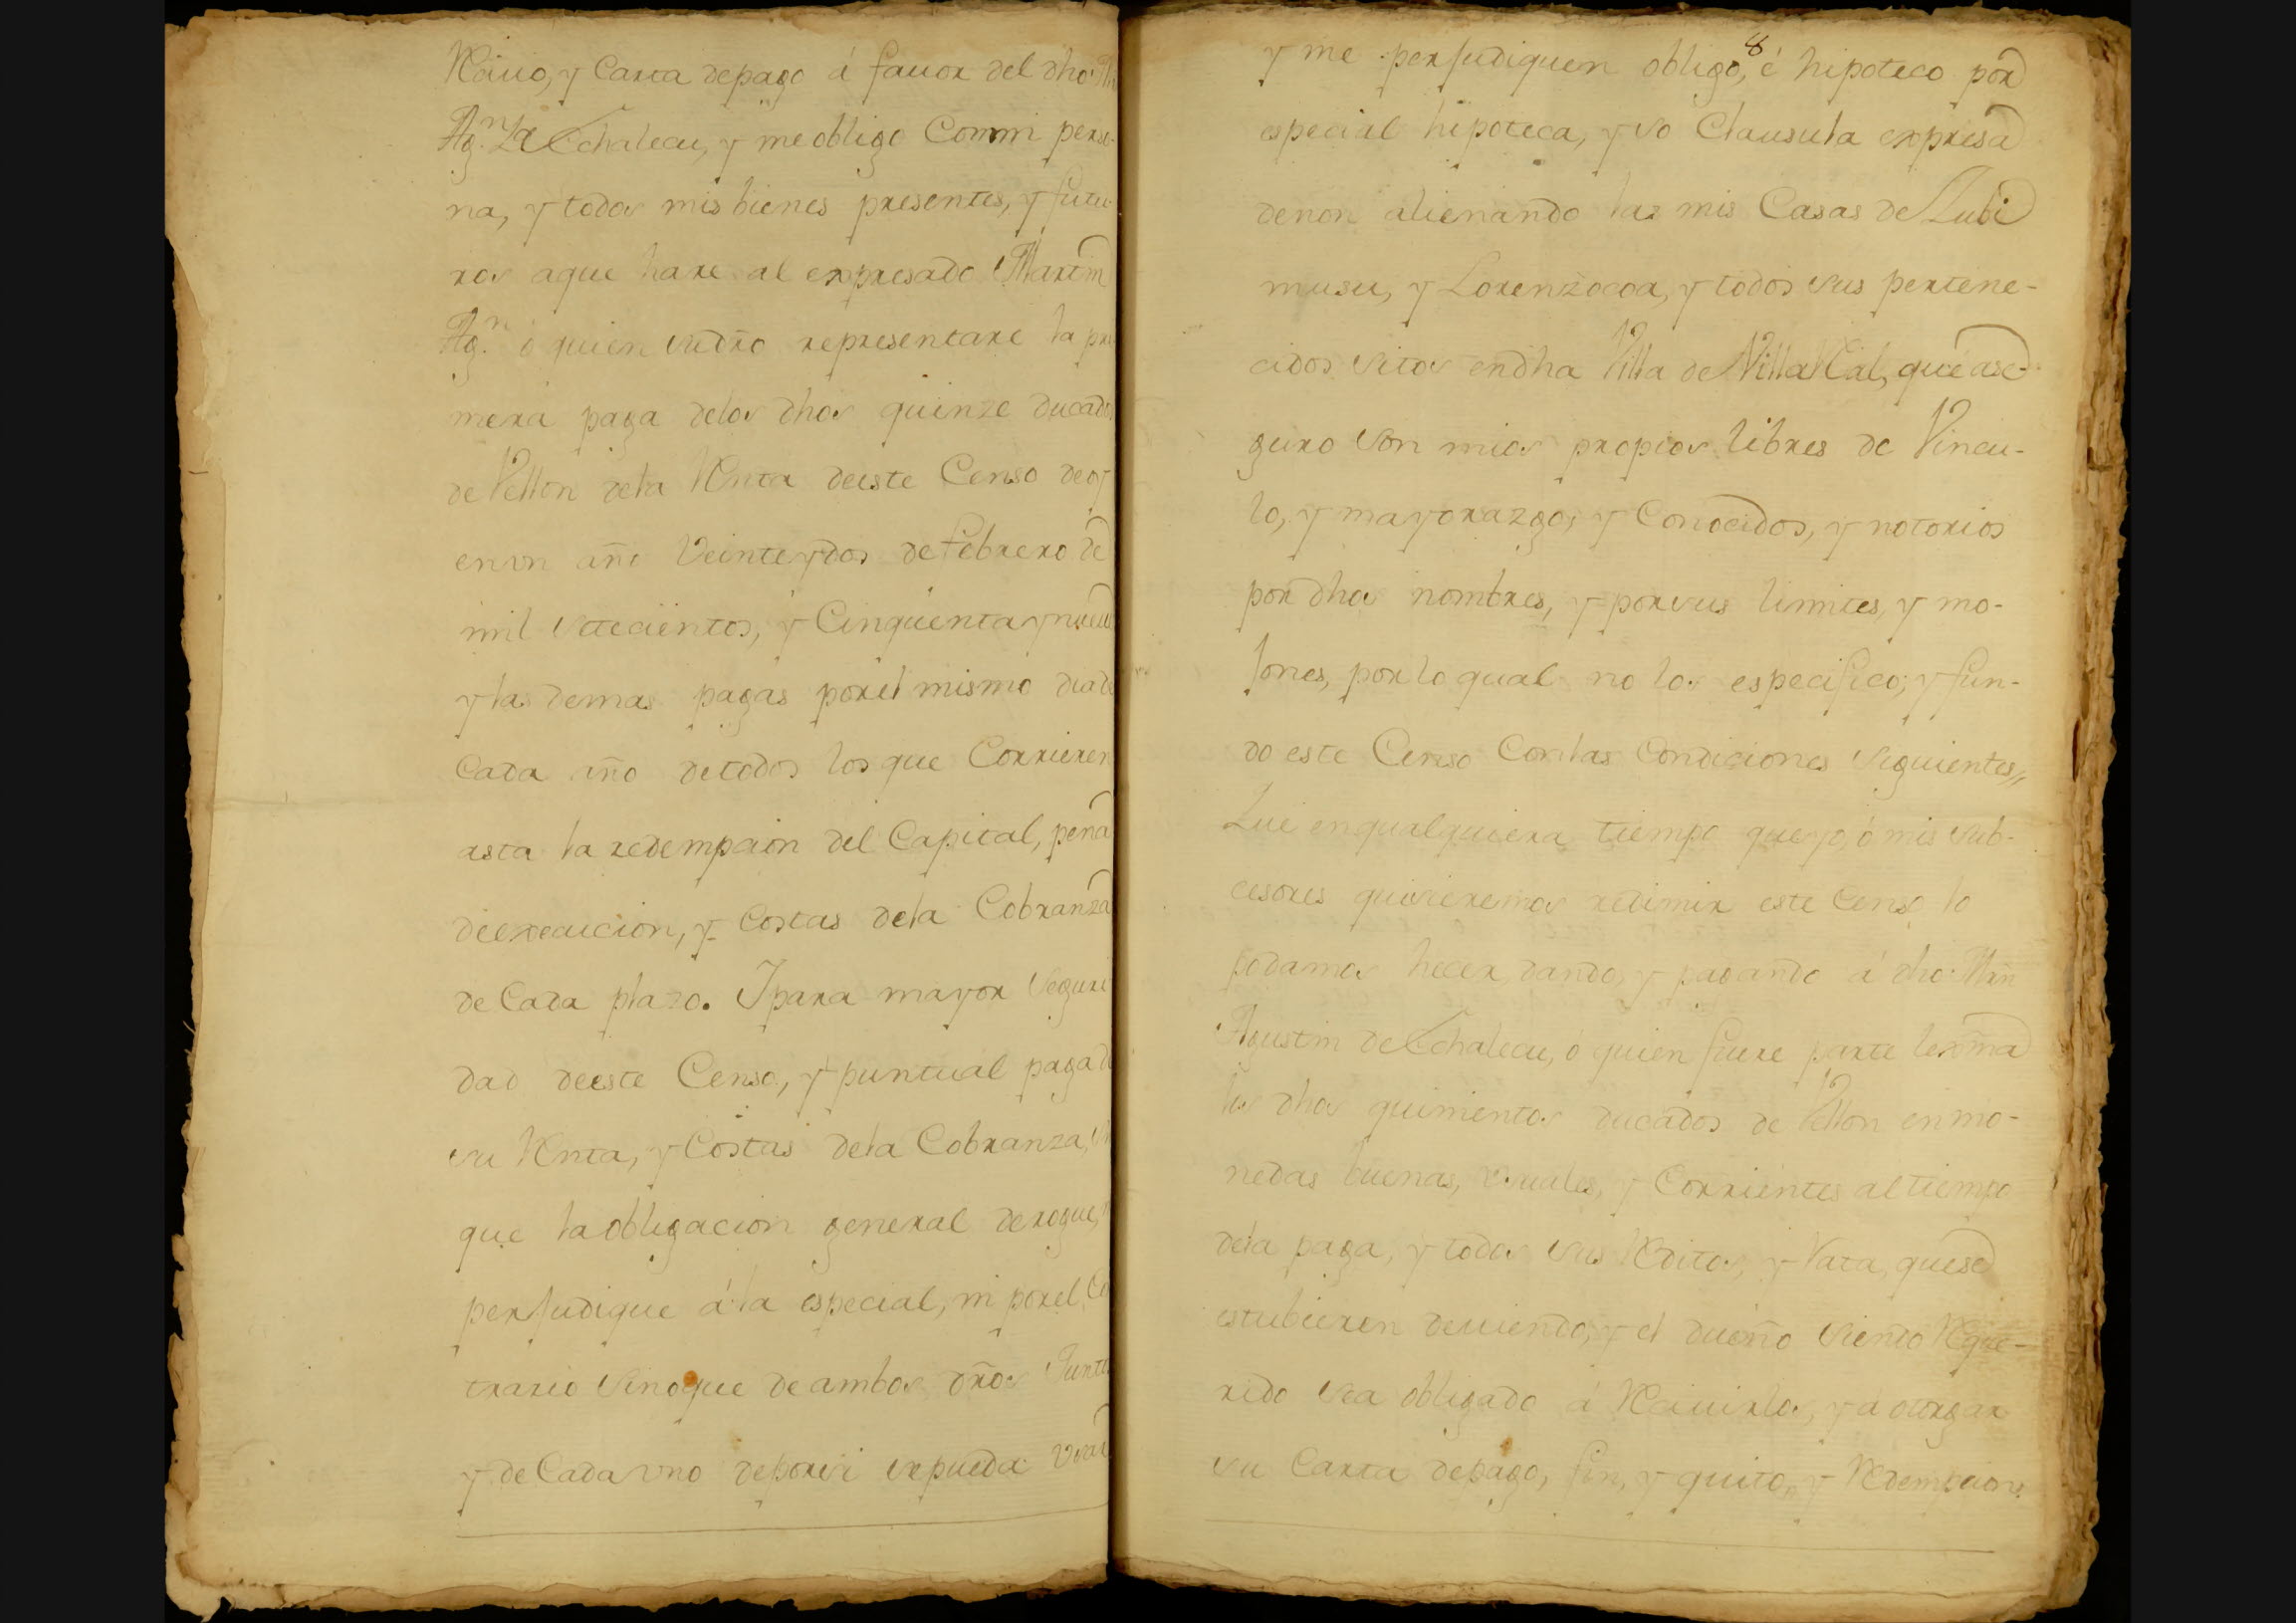 Reciuo, y Carta depago á fauor del dho. Mn
Agn. de Echalecu, y me obligo Conmi perso-
na, y todos mis bienes presentes, y futu-
ros aque hare al expresado Martin
Agn. ó quien sudro representare la pri-
mera paga delos dhos quinze ducados
de Vellon dela Renta deeste Censo de oy
en vn año Veinte y dos de febrero de
mil setecientos, y Cinquenta y nueue
y las demas pagas porel mismo dia de
Cada año detodos los que Corrieren
asta la redempcion del Capital, pena
deexecucion, y Costas dela Cobranza
de Cada plazo. Ipara mayor Seguri
dad deeste Censo, y puntual paga de
su Renta, y Costas dela Cobranza, sin
que la obligacion general derogue, ni
perjudique á la especial, ni porel Con
trario sinoque de ambos dros Juntos
y de Cada vno deporsi sepueda Vsar
8
y me perjudiquen obligo, é hipoteco por
especial hipoteca, y so Clausula expresa
denon alienando las mis Casas de Lubi
musu, y Lorenzocoa, y todos sus pertene-
cidos sitos endha Villa de Villa Real, que ase-
guro son mios propios libres de Vincu-
lo, y mayorazgo, y Conocidos, y notorios
por dhos nombres, y porsus limites, y mo-
jones, porlo qual no los especifico; y fun-
do este Censo Conlas Condiciones siguientes,,
Que enqualquiera tiempo que yo, ó mis sub-
cesores quisieremos redimir este Censo lo
podamos hecer, dando, y pagando á dho. Mrn
Agustin de Echalecu, ó quien fuere parte lexma
los dhos quinientos ducados de Vellon en mo-
nedas buenas, vsuales, y Corrientes al tiempo
dela paga, y todos sus Reditos, y rata, quese
estubieren deuiendo, y el dueño siendo Reque-
rido sea obligado á Reciuirlos, y á otorgar
su Carta depago, fin, y quito, y Redempcion